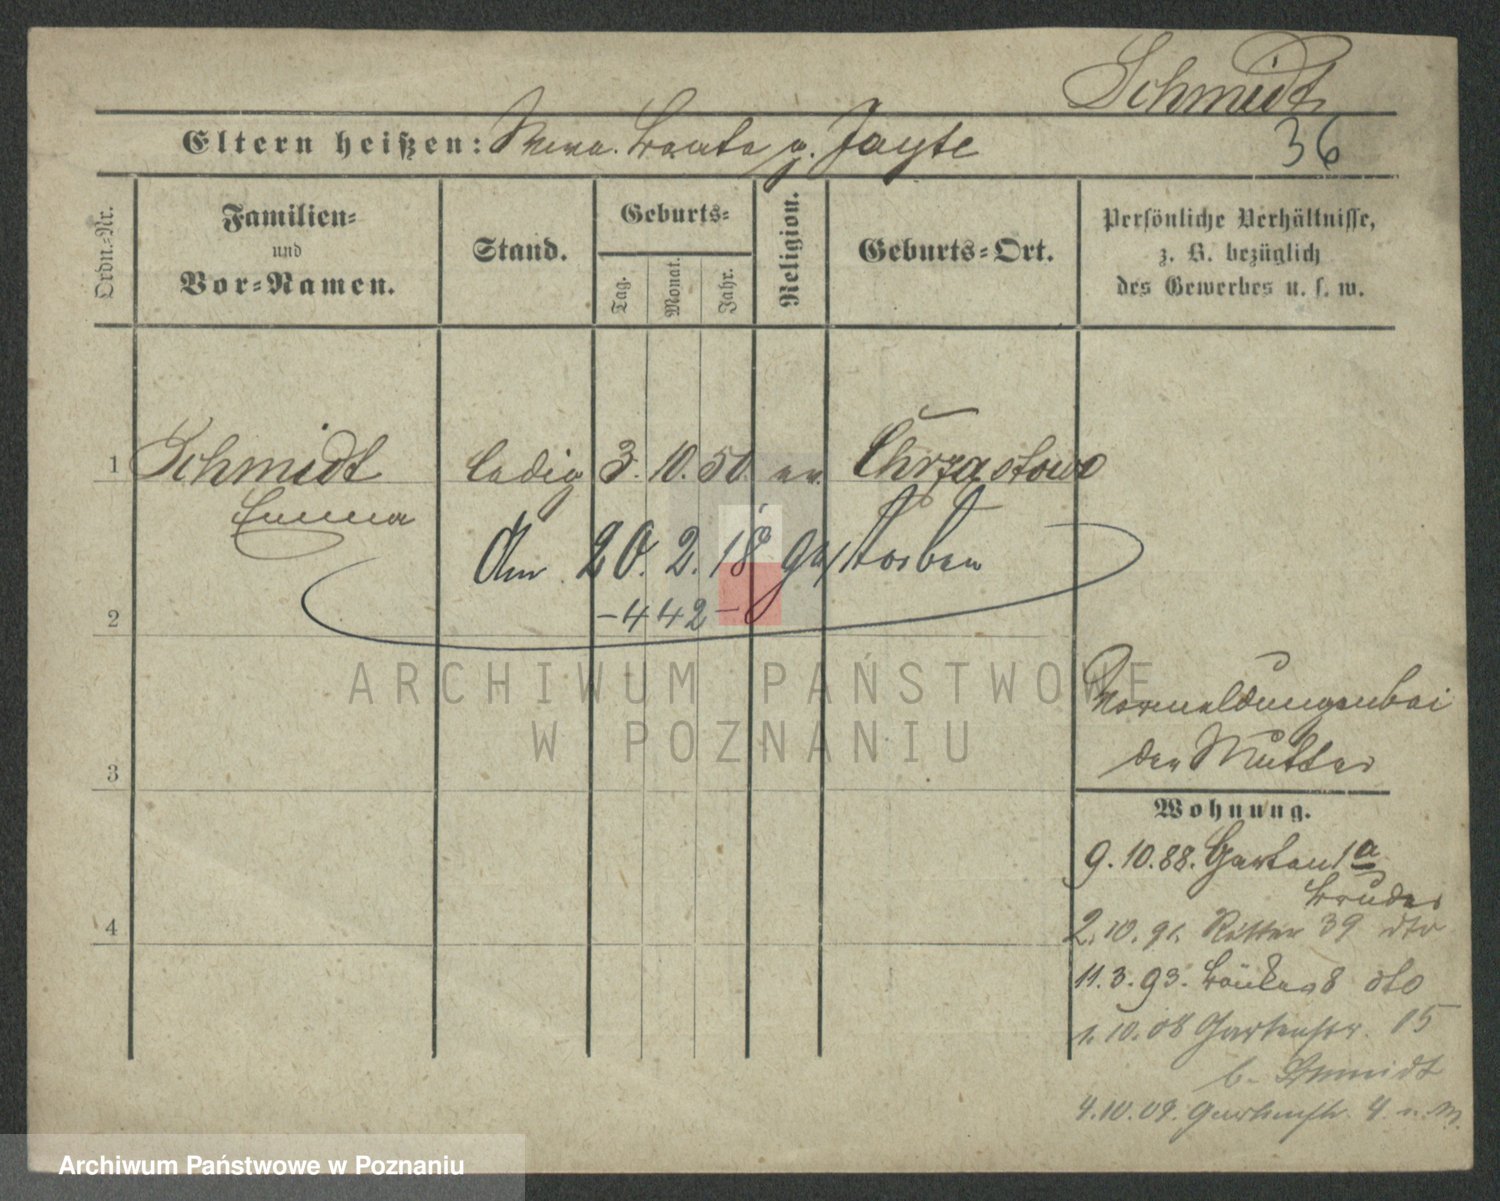 Schmidt
36
Eltern heißen: Beate g. Jayte
Ordn.-Nr.
Familien-
und
Vor-Namen.
Stand.
Geburts-
Tag.
Monat.
Jahr.
Religion.
Geburts-Ort.
Persönliche Verhältnisse,
z. B. bezüglich
des Gewerbes u. s. w.
1 Schmidt ledig 3. 10. 50. ev. Chrząstowo
Emma
Am 20. 2. 18 gestorben
-442-
2
ARCHIWUM PAŃSTWOWE
W POZNANIU
Vormeldungen bei
der Mutter
3
Wohnung.
9. 10. 88. Garten 1a
Bruder
4
2. 10. 91. Ritter 39 dto
11. 3. 93. Bäcker 8 dto
1. 10. 08 Gartenstr. 15
b. Schmidt
4. 10. 09. Gartenstr. 4. b. M.
Archiwum Państwowe w Poznaniu